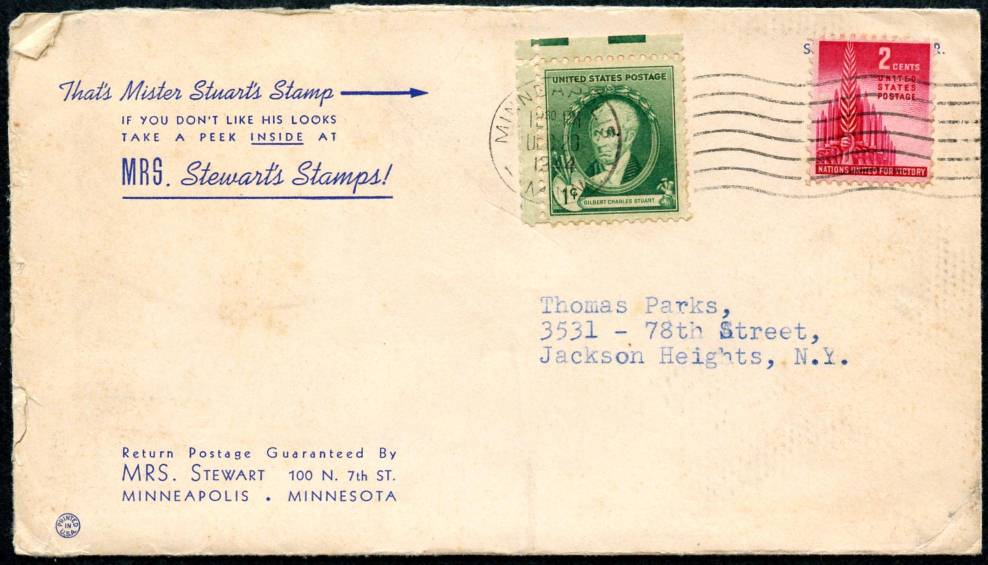 That's Mister Stuart's Stamp
IF YOU DON'T LIKE HIS LOOKS
TAKE A PEEK INSIDE AT
MRS. Stewart's Stamps!
UNITED STATES POSTAGE
1¢
GILBERT CHARLES STUART
2 CENTS
UNITED
STATES
POSTAGE
NATIONS UNITED FOR VICTORY
Thomas Parks,
3531 - 78th Street,
Jackson Heights, N.Y.
Return Postage Guaranteed By
MRS. STEWART 100 N. 7th ST.
MINNEAPOLIS • MINNESOTA
PRINTED
IN
U.S.A.